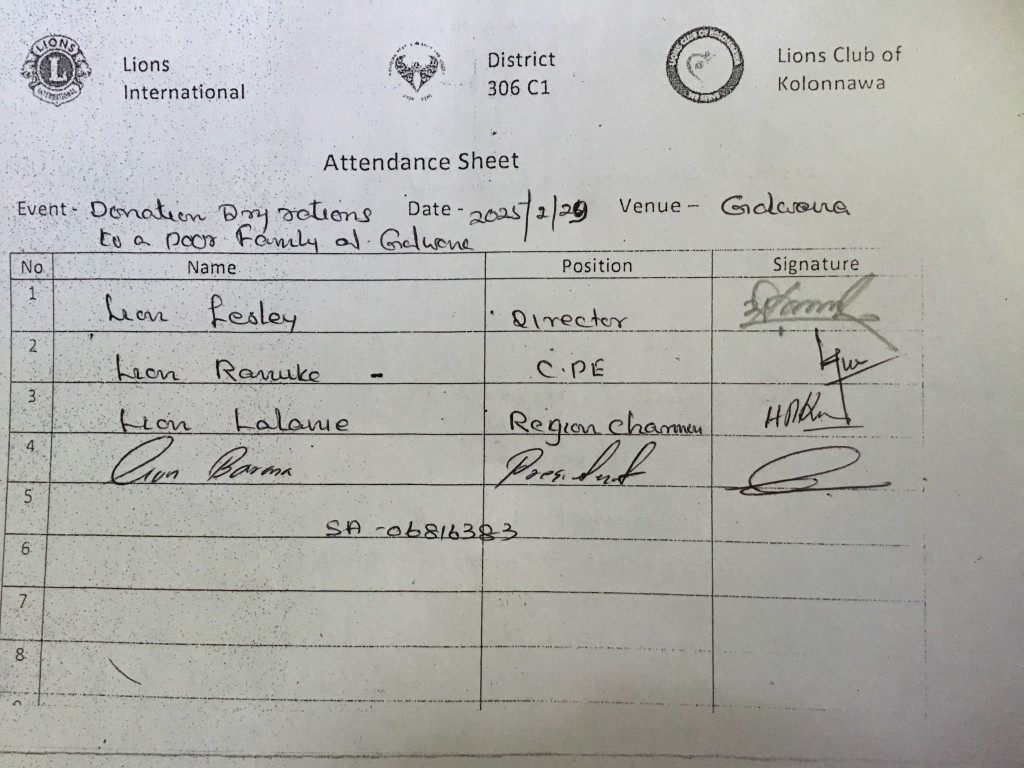 LIONS
L
INTERNATIONAL
Lions
International
District
306 C1
LIONS CLUB OF KOLONNAWA
Lions Club of
Kolonnawa
Attendance Sheet
Event - Donation Dry rations Date - 2025/2/29 Venue - Godwana
to a poor Family at. Godwana
No Name Position Signature
1 Lion Lesley Director
2 Lion Ranuke - C.PE
3 Lion Lalanie Region Charmen
4 Lion Barma President
5
SA -06816383
6
7
8